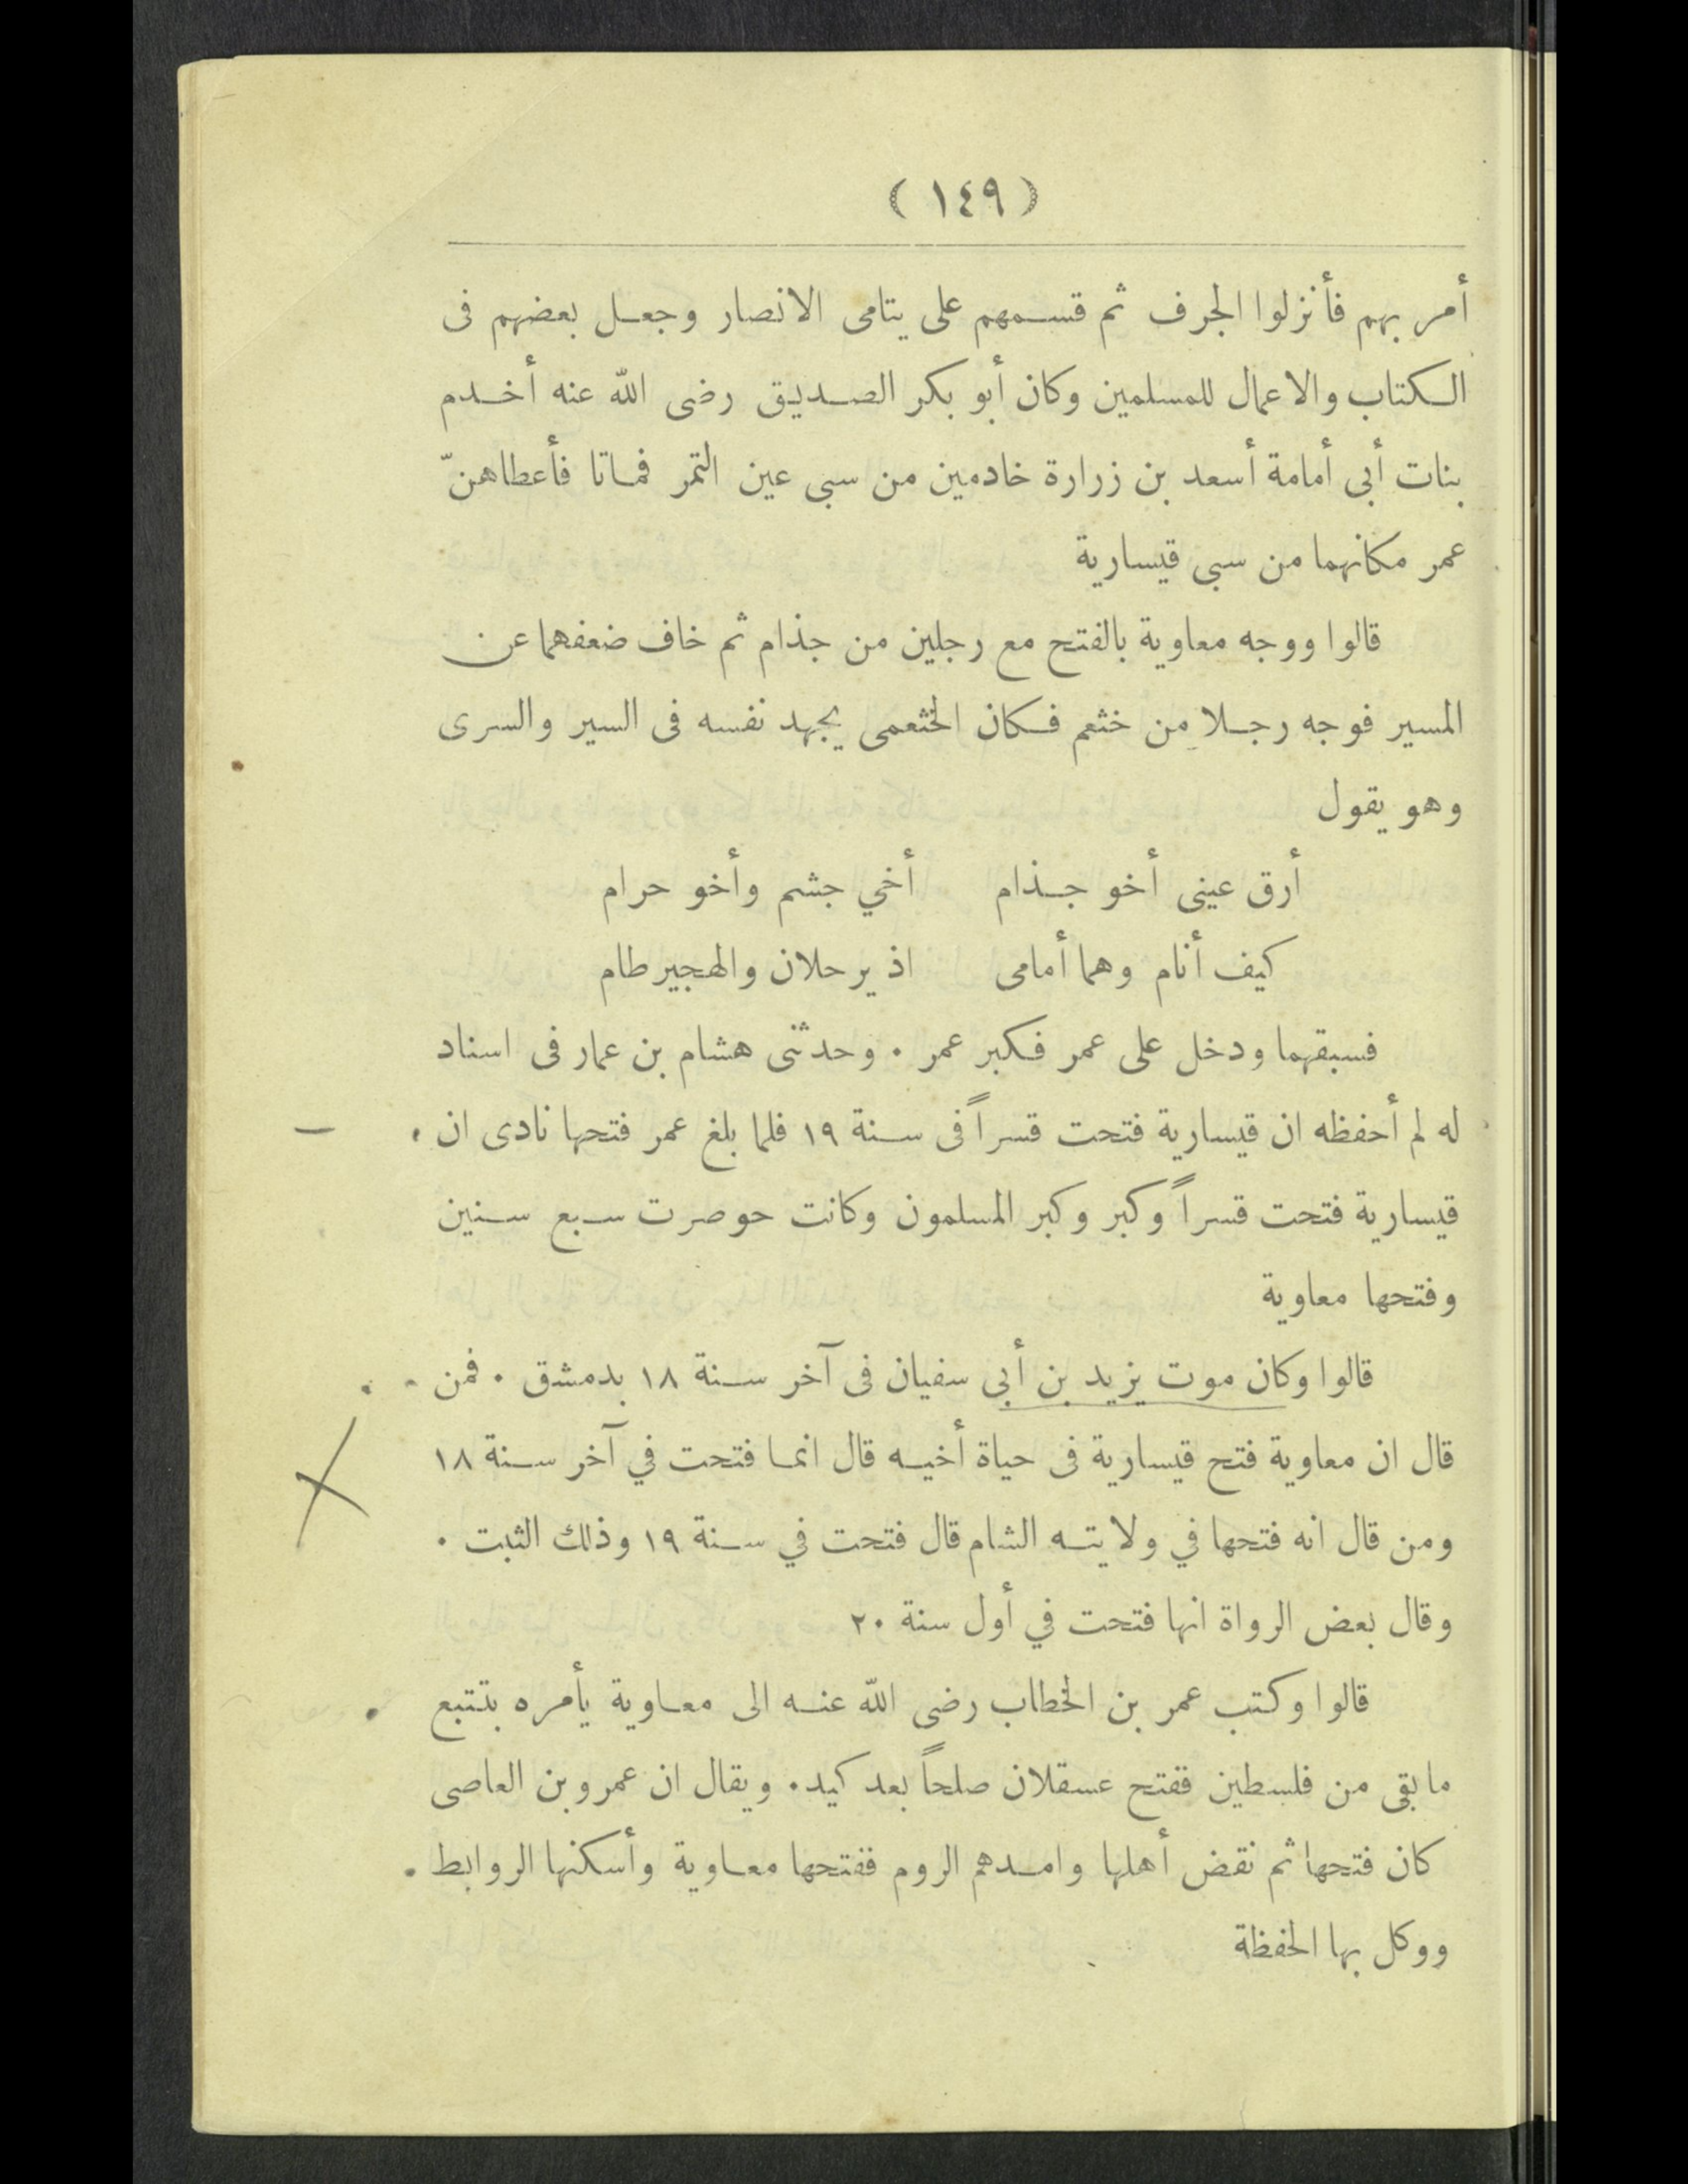 ( ١٤٩ )
أمر بهم فأنزلوا الجرف ثم قسمهم على يتامى الانصار وجعل بعضهم فى
الكتاب والاعمال للمسلمين وكان أبو بكر الصديق رضى الله عنه أخدم
بنات أبى أمامة أسعد بن زرارة خادمين من سبى عين التمر فماتا فأعطاهنّ
عمر مكانهما من سبى قيسارية
قالوا ووجه معاوية بالفتح مع رجلين من جذام ثم خاف ضعفهما عن
المسير فوجه رجلا من خثعم فكان الخثعمى يجهد نفسه فى السير والسرى
وهو يقول
أرق عينى أخو جذام أخي جشم وأخو حرام
كيف أنام وهما أمامى اذ يرحلان والهجير طام
فسبقهما ودخل على عمر فكبر عمر . وحدثنى هشام بن عمار فى اسناد
له لم أحفظه ان قيسارية فتحت قسراً فى سنة ١٩ فلما بلغ عمر فتحها نادى ان
قيسارية فتحت قسراً وكبر وكبر المسلمون وكانت حوصرت سبع سنين
وفتحها معاوية
قالوا وكان موت يزيد بن أبى سفيان فى آخر سنة ١٨ بدمشق . فمن
قال ان معاوية فتح قيسارية فى حياة أخيه قال انما فتحت في آخر سنة ١٨
ومن قال انه فتحها في ولايته الشام قال فتحت في سنة ١٩ وذلك الثبت .
وقال بعض الرواة انها فتحت في أول سنة ٢٠
قالوا وكتب عمر بن الخطاب رضى الله عنه الى معاوية يأمره بتتبع
ما بقى من فلسطين ففتح عسقلان صلحاً بعد كيد . ويقال ان عمرو بن العاصى
كان فتحها ثم نقض أهلها وامدهم الروم ففتحها معاوية وأسكنها الروابط
ووكل بها الحفظة